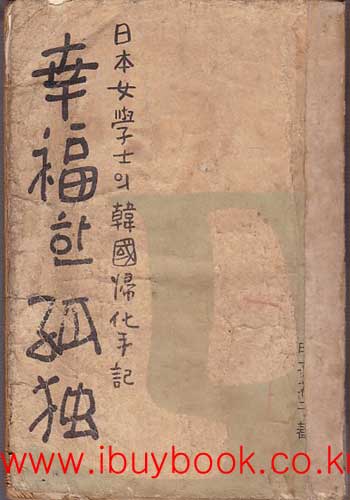 日本女學士의 韓國歸化手記
幸福한 孤独
著
www.ibuybook.co.kr